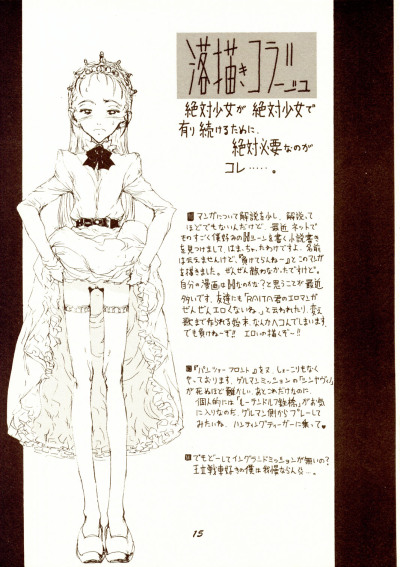 落描きコラージュ
絶対少女が 絶対少女で
有り続けるために、
絶対必要なのが
コレ……。
マンガについて解説を少し、解説って
ほどでもないんだけど、最近、ネットで
ものすごく僕好みの
シーンを書く小説書き
を見つけまして、はまっちゃったわけですよ、名前
は云えませんけど、「負けてらんねー」とこのマンガ
を描きました。ぜんぜん敵わなかったですけど。
自分の漫画は
と思うことが最近
多いです。友達にも「RAITA君のエロマンガ
ぜんぜんエロくないね。」と云われたり、
なんかヘコんでしまいます、
でも負けねーぞ!! エロい の描くぞー!!
『パンツァー フロント』を
しょーこりもなく
やっております、ゲルマンミッションの「シンヤヴィ」
が死ぬほど難かしい、あとこれだけなのに、
個人的には「レーサンドルフ数橋」がお気
に入りなのだ、ゲルマン側からプレーして
みたいね、ハンティングティーガーに乗って♥
でもどーしてイングランドミッションが無いの?
王立戦車好きの僕は我慢ならん
15